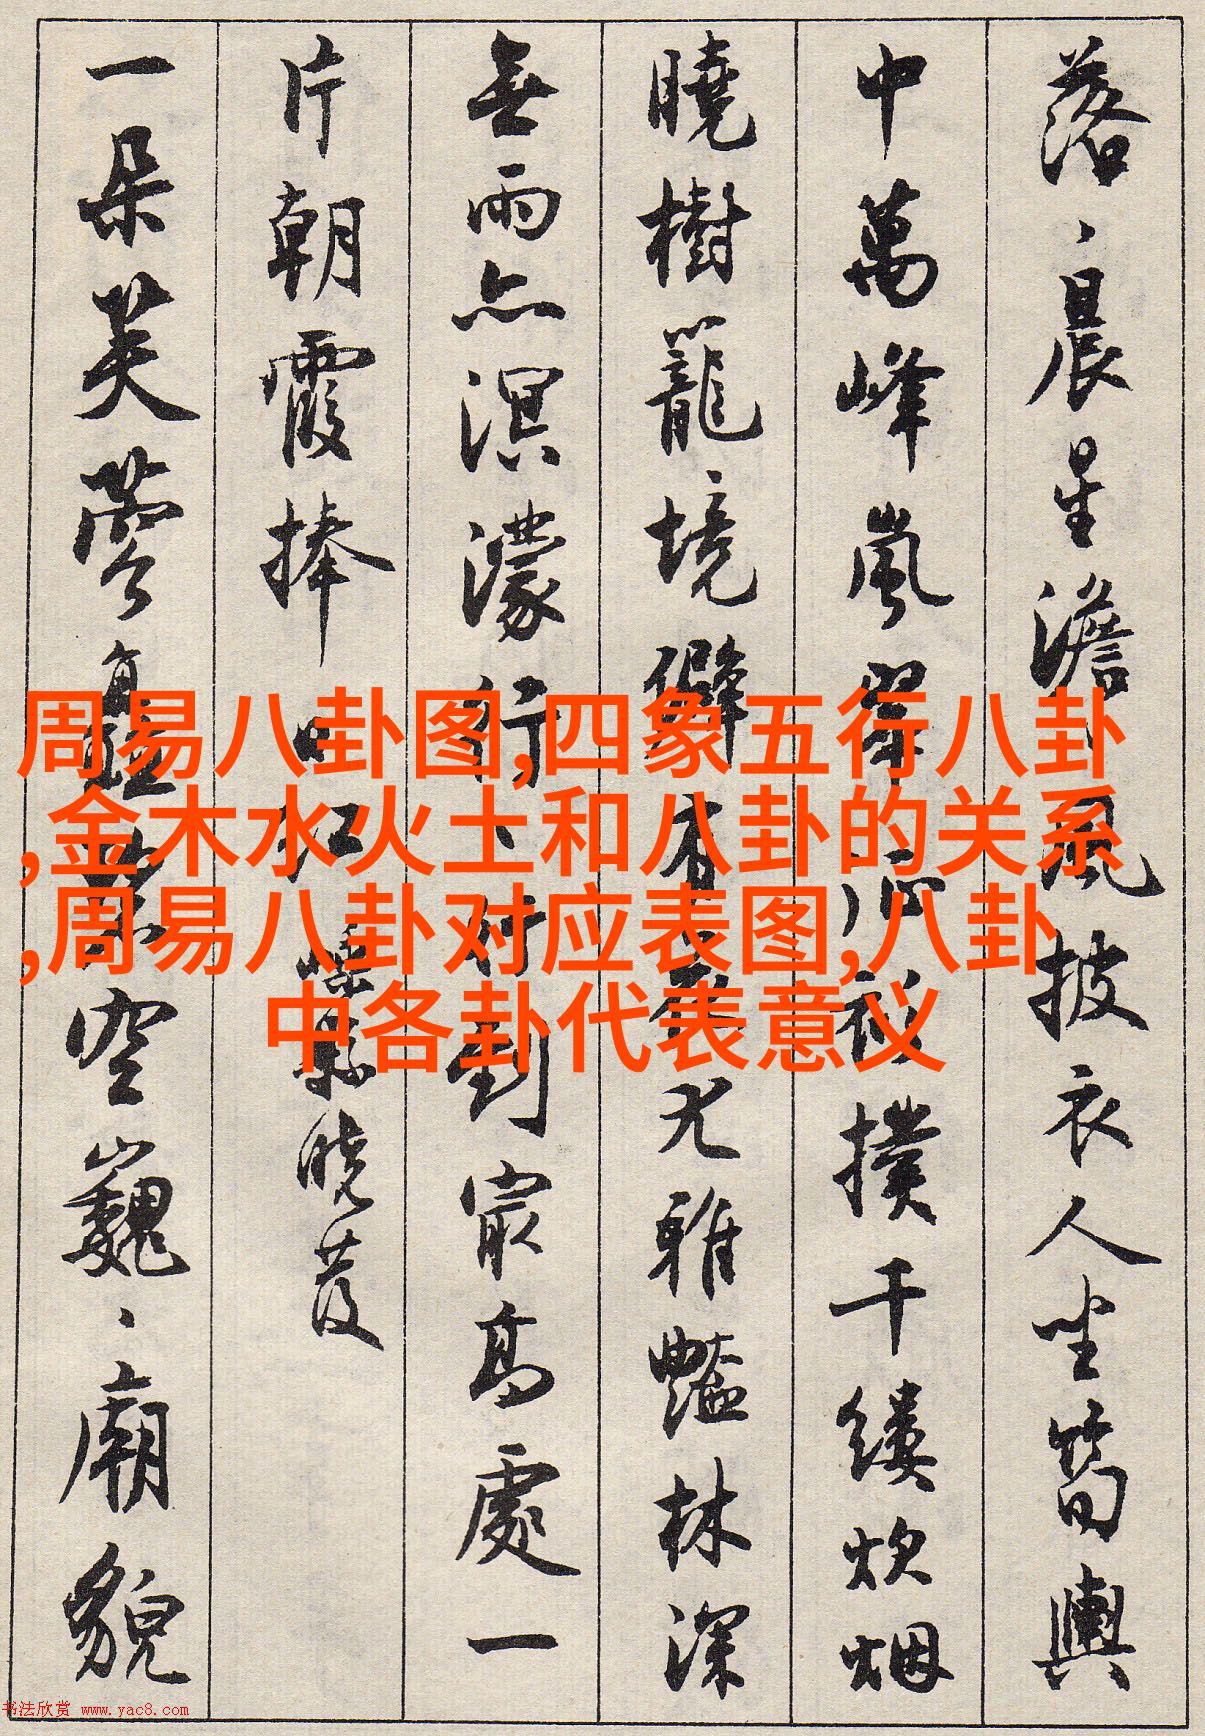 落、晨星澹、風披衣人坐筍輿
中萬峰嵐翠衫撲千縷炊烟
曉樹籠、境僻尤雅豔林深
無雨亦溟濛行、到最高處一
片朝霞捧日紅 嵊縣曉發
一朵芙蓉空巍、廟貌
周易八卦图,四象五行八卦
,金木水火土和八卦的关系
,周易八卦对应表图,八卦
中各卦代表意义
书法欣赏 www.yac8.com